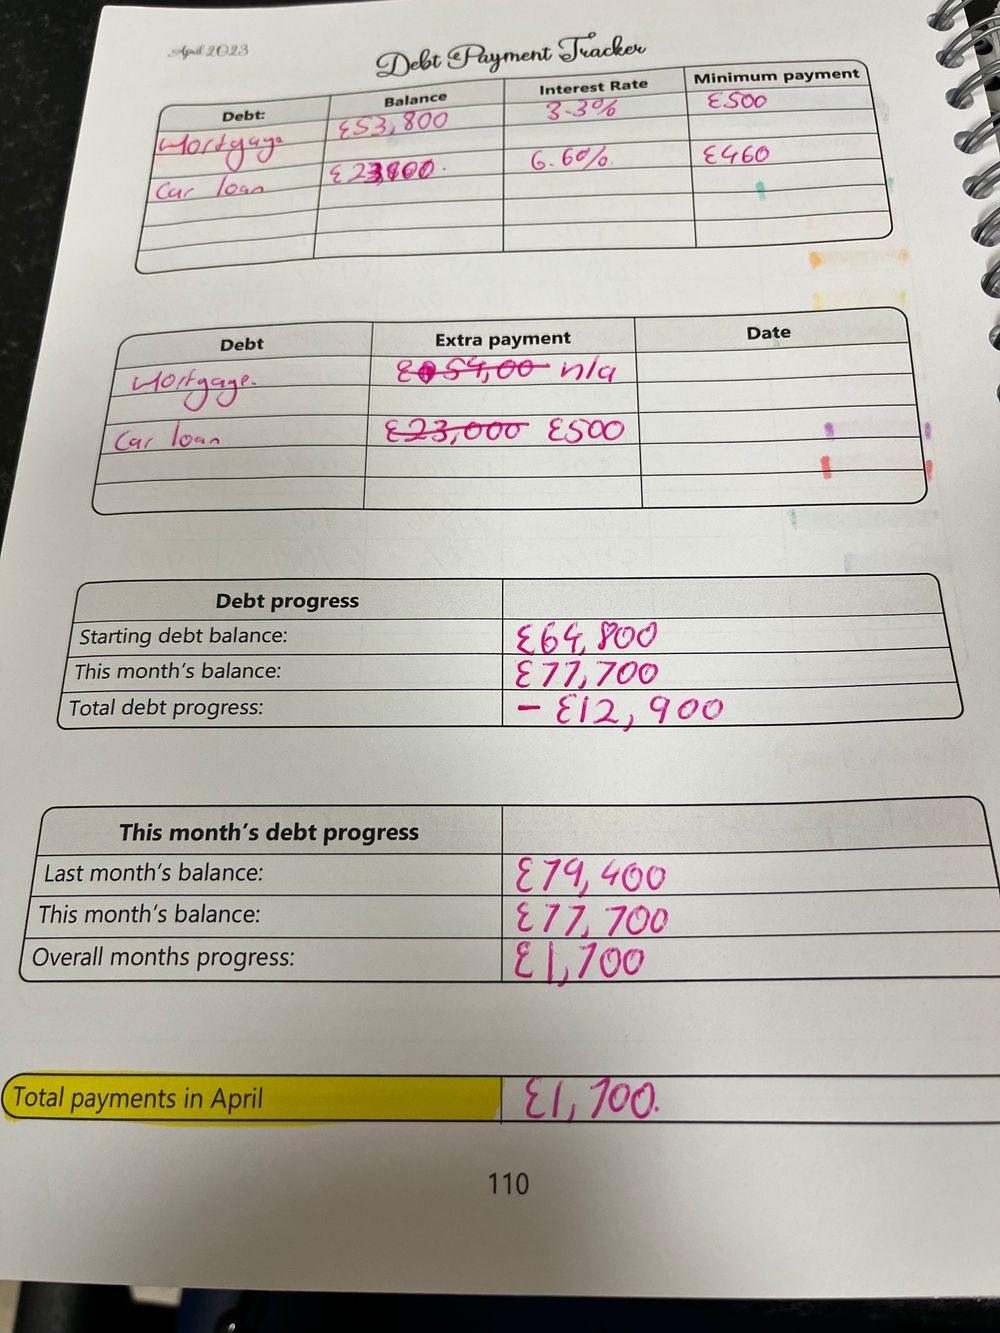 April 2023
Debt Payment Tracker
Debt: Balance Interest Rate Minimum payment
Mortgage £53,800 3.3% £500
Car loan 6.6%. £460
Debt Extra payment Date
Mortgage. n/a
Car loan £23,000 £500
Debt progress
Starting debt balance: £64,800
This month's balance: £77,700
Total debt progress: - £12,900
This month's debt progress
Last month's balance: £79,400
This month's balance: £77,700
Overall months progress: £1,700
Total payments in April £1,700.
110